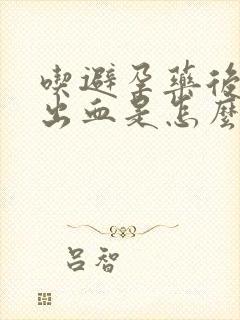 喫避孕藥後
出血是怎麼
呂智